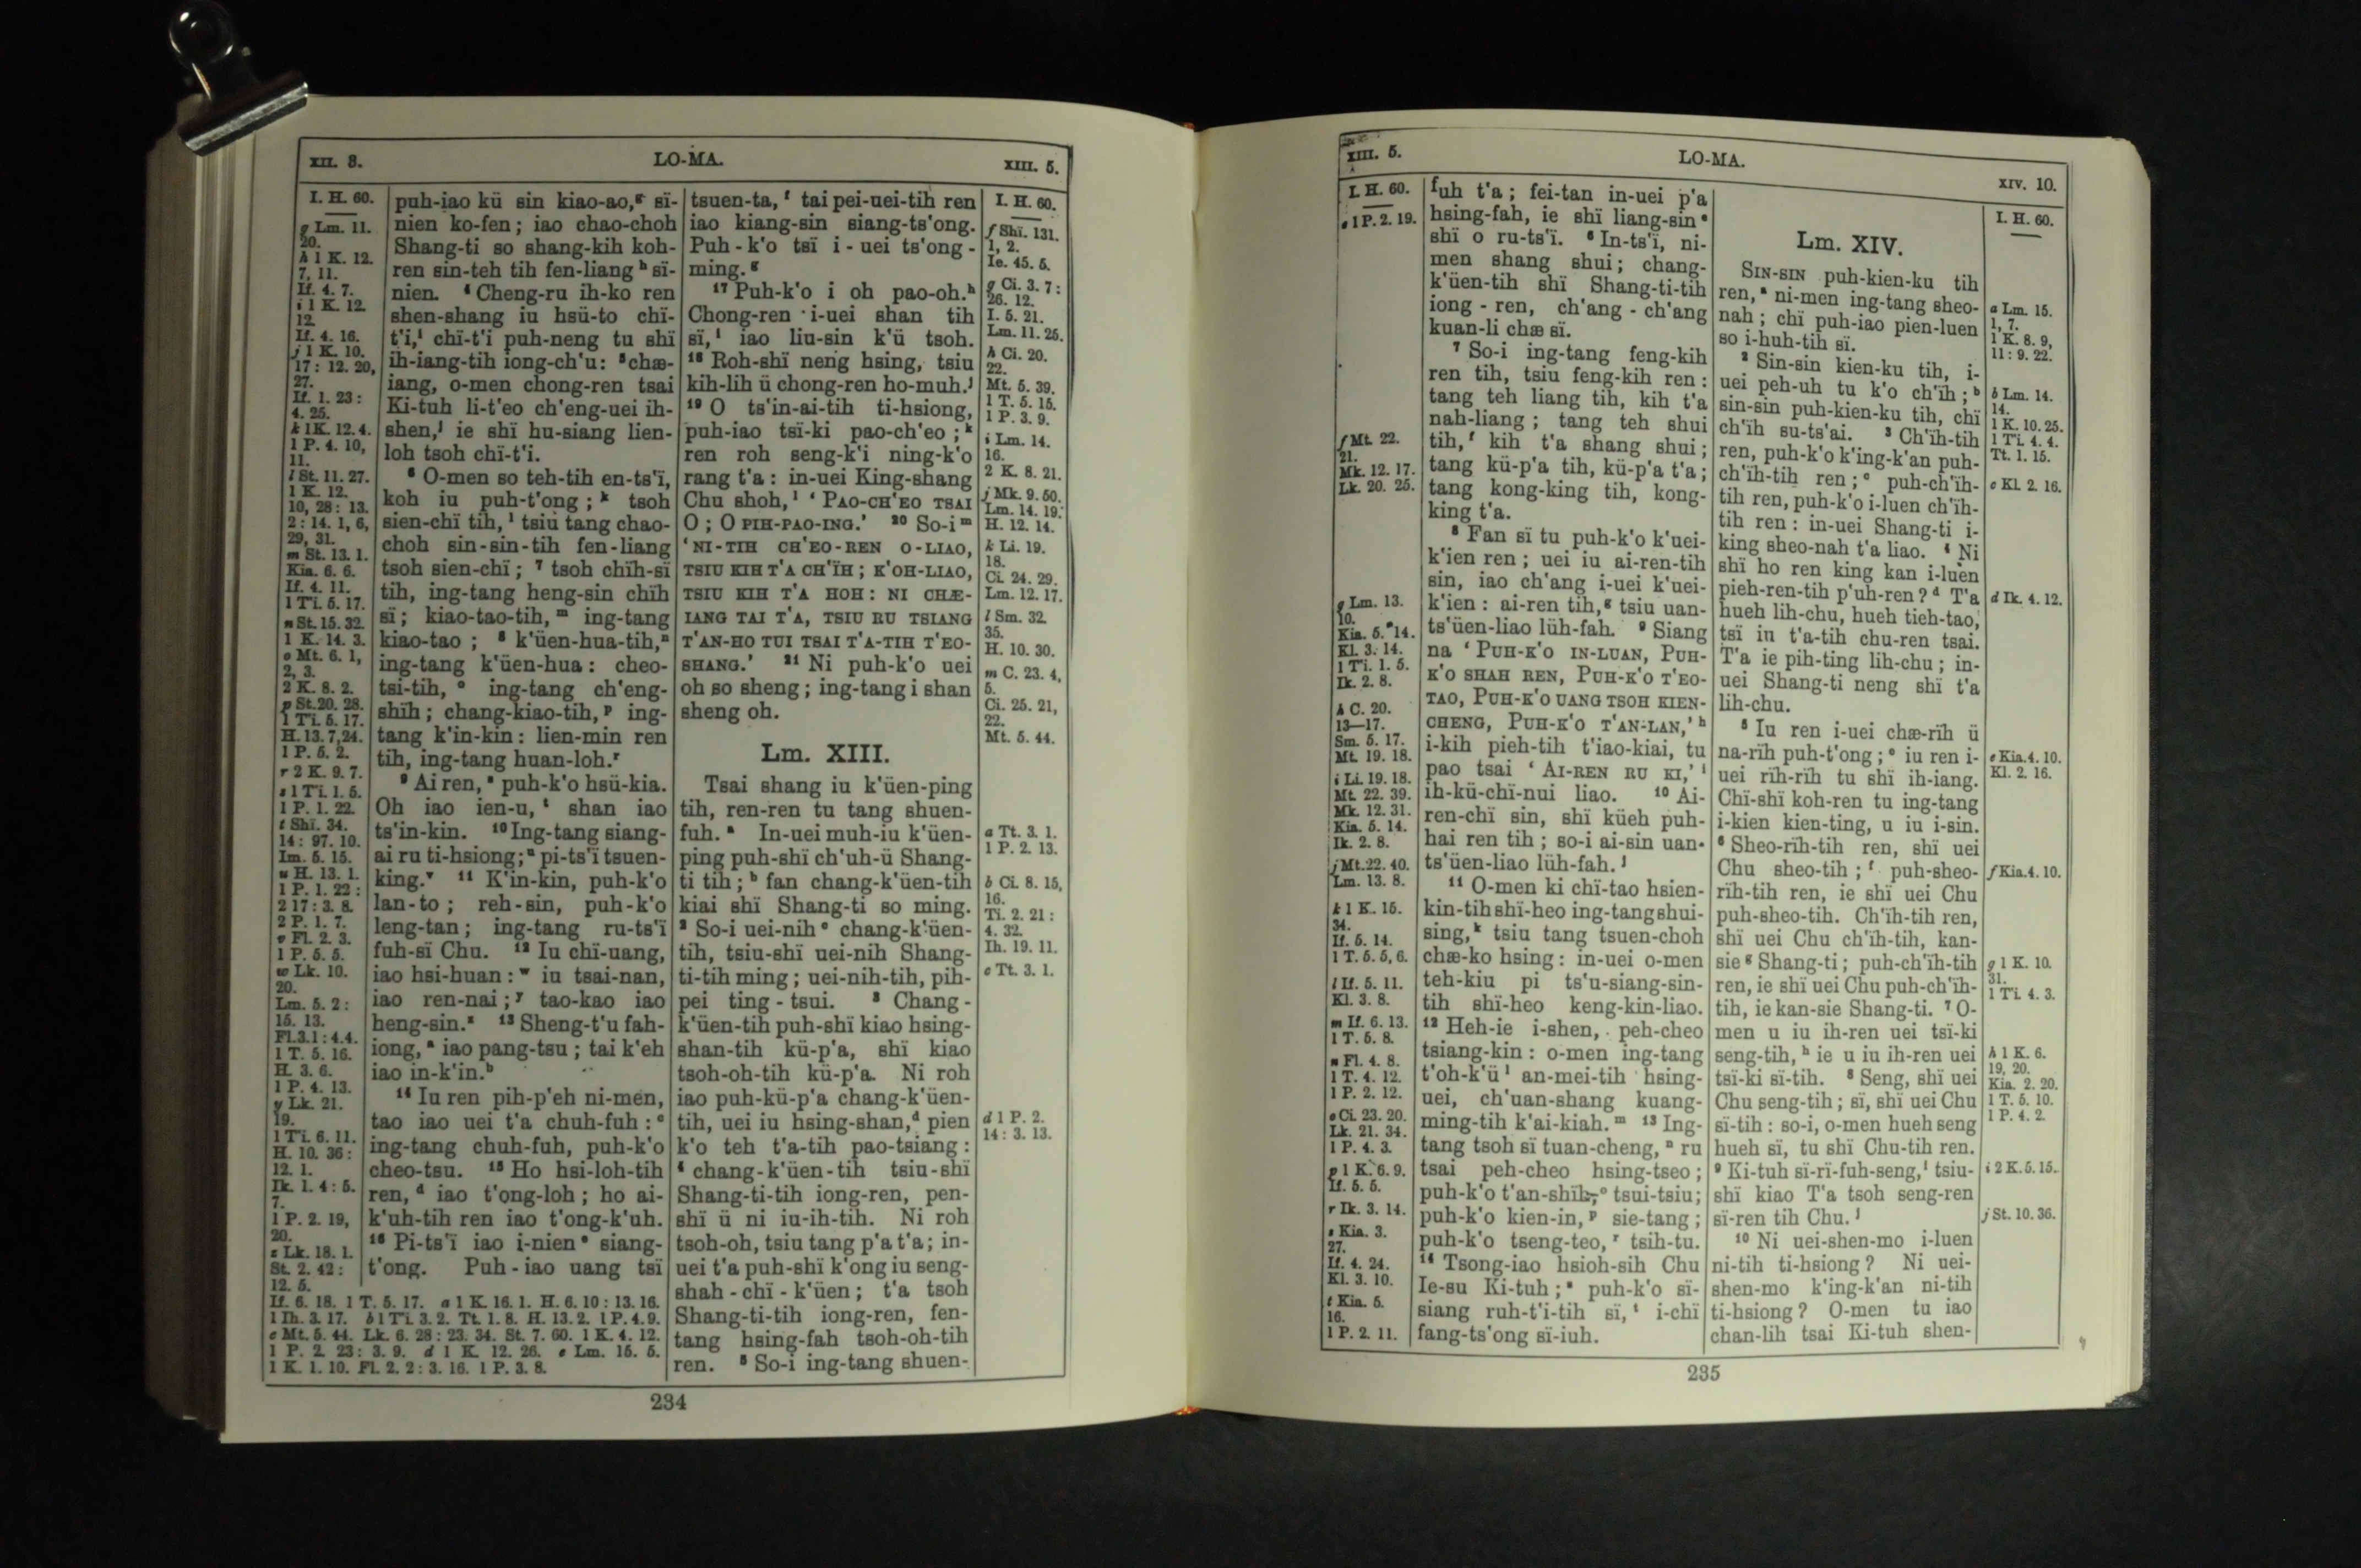 XII. 3.
LO-MA.
XIII. 5.
I. H. 60.
g Lm. 11.
20.
h 1 K. 12.
7, 11.
If. 4. 7.
i 1 K. 12.
12.
If. 4. 16.
j 1 K. 10.
17 : 12. 20,
27.
If. 1. 23 :
4. 25.
k 1 K. 12. 4.
1 P. 4. 10,
11.
l St. 11. 27.
1 K. 12.
10, 28 : 13.
2 : 14. 1, 6,
29, 31.
m St. 13. 1.
Kia. 6. 6.
If. 4. 11.
1 Ti. 5. 17.
n St. 15. 32.
1 K. 14. 3.
o Mt. 6. 1,
2, 3.
2 K. 8. 2.
p St. 20. 28.
1 Ti. 5. 17.
H. 13. 7, 24.
1 P. 5. 2.
r 2 K. 9. 7.
s 1 Ti. 1. 5.
1 P. 1. 22.
t Shï. 34.
14 : 97. 10.
Im. 5. 15.
u H. 13. 1.
1 P. 1. 22 :
2 17 : 3. 8.
2 P. 1. 7.
v Fl. 2. 3.
1 P. 5. 5.
w Lk. 10.
20.
Lm. 5. 2 :
15. 13.
Fl. 3. 1 : 4. 4.
1 T. 5. 16.
H. 3. 6.
1 P. 4. 13.
y Lk. 21.
19.
1 Ti. 6. 11.
H. 10. 36 :
12. 1.
Ik. 1. 4 : 5.
7.
1 P. 2. 19,
20.
z Lk. 18. 1.
St. 2. 42 :
12. 5.
If. 6. 18. 1 T. 5. 17. a 1 K. 16. 1. H. 6. 10 : 13. 16.
1 Ih. 3. 17. b 1 Ti. 3. 2. Tt. 1. 8. H. 13. 2. 1 P. 4. 9.
c Mt. 5. 44. Lk. 6. 28 : 23. 34. St. 7. 60. 1 K. 4. 12.
1 P. 2. 23 : 3. 9. d 1 K. 12. 26. e Lm. 15. 5.
1 K. 1. 10. Fl. 2. 2 : 3. 16. 1 P. 3. 8.
puh-iao kü sin kiao-ao,ᵍ sï-
nien ko-fen; iao chao-choh
Shang-ti so shang-kih koh-
ren sin-teh tih fen-liang ʰ sï-
nien. ⁴ Cheng-ru ih-ko ren
shen-shang iu hsü-to chï-
t'i,ⁱ chï-t'i puh-neng tu shï
ih-iang-tih iong-ch'u: ⁵ chæ-
iang, o-men chong-ren tsai
Ki-tuh li-t'eo ch'eng-uei ih-
shen,ʲ ie shï hu-siang lien-
loh tsoh chï-t'i.
⁶ O-men so teh-tih en-ts'ï,
koh iu puh-t'ong;ᵏ tsoh
sien-chï tih,ˡ tsiu tang chao-
choh sin-sin-tih fen-liang
tsoh sien-chï; ⁷ tsoh chïh-sï
tih, ing-tang heng-sin chïh
sï; kiao-tao-tih,ᵐ ing-tang
kiao-tao; ⁸ k'üen-hua-tih,ⁿ
ing-tang k'üen-hua: cheo-
tsi-tih,ᵒ ing-tang ch'eng-
shïh; chang-kiao-tih,ᵖ ing-
tang k'in-kin: lien-min ren
tih, ing-tang huan-loh.ʳ
⁹ Ai ren,ˢ puh-k'o hsü-kia.
Oh iao ien-u,ᵗ shan iao
ts'in-kin. ¹⁰ Ing-tang siang-
ai ru ti-hsiong;ᵘ pi-ts'ï tsuen-
king.ᵛ ¹¹ K'in-kin, puh-k'o
lan-to; reh-sin, puh-k'o
leng-tan; ing-tang ru-ts'ï
fuh-sï Chu. ¹² Iu chï-uang,
iao hsi-huan:ʷ iu tsai-nan,
iao ren-nai;ʸ tao-kao iao
heng-sin.ᶻ ¹³ Sheng-t'u fah-
iong,ᵃ iao pang-tsu; tai k'eh
iao in-k'in.ᵇ
¹⁴ Iu ren pih-p'eh ni-men,
tao iao uei t'a chuh-fuh:ᶜ
ing-tang chuh-fuh, puh-k'o
cheo-tsu. ¹⁵ Ho hsi-loh-tih
ren,ᵈ iao t'ong-loh; ho ai-
k'uh-tih ren iao t'ong-k'uh.
¹⁶ Pi-ts'ï iao i-nien ᵉ siang-
t'ong. Puh-iao uang tsï
tsuen-ta,ᶠ tai pei-uei-tih ren
iao kiang-sin siang-ts'ong.
Puh-k'o tsï i-uei ts'ong-
ming.ᵍ
¹⁷ Puh-k'o i oh pao-oh.ʰ
Chong-ren i-uei shan tih
sï,ⁱ iao liu-sin k'ü tsoh.
¹⁸ Roh-shï neng hsing, tsiu
kih-lih ü chong-ren ho-muh.ʲ
¹⁹ O ts'in-ai-tih ti-hsiong,
puh-iao tsï-ki pao-ch'eo;ᵏ
ren roh seng-k'i ning-k'o
rang t'a: in-uei King-shang
Chu shoh,ˡ ‘ PAO-CH'EO TSAI
O; O PIH-PAO-ING.’ ²⁰ So-i ᵐ
‘NI-TIH CH'EO-REN O-LIAO,
TSIU KIH T'A CH'ÏH; K'OH-LIAO,
TSIU KIH T'A HOH: NI CHÆ-
IANG TAI T'A, TSIU RU TSIANG
T'AN-HO TUI TSAI T'A-TIH T'EO-
SHANG.’ ²¹ Ni puh-k'o uei
oh so sheng; ing-tang i shan
sheng oh.
Lm. XIII.
Tsai shang iu k'üen-ping
tih, ren-ren tu tang shuen-
fuh.ᵃ In-uei muh-iu k'üen-
ping puh-shï ch'uh-ü Shang-
ti tih;ᵇ fan chang-k'üen-tih
kiai shï Shang-ti so ming.
² So-i uei-nih ᶜ chang-k'üen-
tih, tsiu-shï uei-nih Shang-
ti-tih ming; uei-nih-tih, pih-
pei ting-tsui. ³ Chang-
k'üen-tih puh-shï kiao hsing-
shan-tih kü-p'a, shï kiao
tsoh-oh-tih kü-p'a. Ni roh
iao puh-kü-p'a chang-k'üen-
tih, uei iu hsing-shan,ᵈ pien
k'o teh t'a-tih pao-tsiang:
⁴ chang-k'üen-tih tsiu-shï
Shang-ti-tih iong-ren, pen-
shï ü ni iu-ih-tih. Ni roh
tsoh-oh, tsiu tang p'a t'a; in-
uei t'a puh-shï k'ong iu seng-
shah-chï-k'üen; t'a tsoh
Shang-ti-tih iong-ren, fen-
tang hsing-fah tsoh-oh-tih
ren. ⁵ So-i ing-tang shuen-
I. H. 60.
f Shï. 131.
1, 2.
Ie. 45. 5.
g Ci. 3. 7 :
26. 12.
I. 5. 21.
Lm. 11. 25.
h Ci. 20.
22.
Mt. 5. 39.
1 T. 5. 15.
1 P. 3. 9.
i Lm. 14.
16.
2 K. 8. 21.
j Mk. 9. 50.
Lm. 14. 19.
H. 12. 14.
k Li. 19.
18.
Ci. 24. 29.
Lm. 12. 17.
l Sm. 32.
35.
H. 10. 30.
m C. 23. 4,
5.
Ci. 25. 21,
22.
Mt. 5. 44.
a Tt. 3. 1.
1 P. 2. 13.
b Ci. 8. 15,
16.
Ti. 2. 21 :
4. 32.
Ih. 19. 11.
c Tt. 3. 1.
d 1 P. 2.
14 : 3. 13.
234
XIII. 5.
LO-MA.
XIV. 10.
I. H. 60.
e 1 P. 2. 19.
f Mt. 22.
21.
Mk. 12. 17.
Lk. 20. 25.
g Lm. 13.
10.
Kia. 5. 14.
Kl. 3. 14.
1 Ti. 1. 5.
Ik. 2. 8.
h C. 20.
13—17.
Sm. 5. 17.
Mt. 19. 18.
i Li. 19. 18.
Mt. 22. 39.
Mk. 12. 31.
Kia. 5. 14.
Ik. 2. 8.
j Mt. 22. 40.
Lm. 13. 8.
k 1 K. 15.
34.
If. 5. 14.
1 T. 5. 5, 6.
l If. 5. 11.
Kl. 3. 8.
m If. 6. 13.
1 T. 5. 8.
n Fl. 4. 8.
1 T. 4. 12.
1 P. 2. 12.
o Ci. 23. 20.
Lk. 21. 34.
1 P. 4. 3.
p 1 K. 6. 9.
If. 5. 5.
r Ik. 3. 14.
s Kia. 3.
27.
If. 4. 24.
Kl. 3. 10.
t Kia. 5.
16.
1 P. 2. 11.
fuh t'a; fei-tan in-uei p'a
hsing-fah, ie shï liang-sin ᵉ
shï o ru-ts'ï. ⁶ In-ts'ï, ni-
men shang shui; chang-
k'üen-tih shï Shang-ti-tih
iong-ren, ch'ang-ch'ang
kuan-li chæ sï.
⁷ So-i ing-tang feng-kih
ren tih, tsiu feng-kih ren:
tang teh liang tih, kih t'a
nah-liang; tang teh shui
tih,ᶠ kih t'a shang shui;
tang kü-p'a tih, kü-p'a t'a;
tang kong-king tih, kong-
king t'a.
⁸ Fan sï tu puh-k'o k'uei-
k'ien ren; uei iu ai-ren-tih
sin, iao ch'ang i-uei k'uei-
k'ien: ai-ren tih,ᵍ tsiu uan-
ts'üen-liao lüh-fah. ⁹ Siang
na ‘ PUH-K'O IN-LUAN, PUH-
K'O SHAH REN, PUH-K'O T'EO-
TAO, PUH-K'O UANG TSOH KIEN-
CHENG, PUH-K'O T'AN-LAN,’ ʰ
i-kih pieh-tih t'iao-kiai, tu
pao tsai ‘ AI-REN RU KI,’ ⁱ
ih-kü-chï-nui liao. ¹⁰ Ai-
ren-chï sin, shï küeh puh-
hai ren tih; so-i ai-sin uan-
ts'üen-liao lüh-fah.ʲ
¹¹ O-men ki chï-tao hsien-
kin-tih shï-heo ing-tang shui-
sing,ᵏ tsiu tang tsuen-choh
chæ-ko hsing: in-uei o-men
teh-kiu pi ts'u-siang-sin-
tih shï-heo keng-kin-liao.
¹² Heh-ie i-shen, peh-cheo
tsiang-kin: o-men ing-tang
t'oh-k'ü ˡ an-mei-tih hsing-
uei, ch'uan-shang kuang-
ming-tih k'ai-kiah.ᵐ ¹³ Ing-
tang tsoh sï tuan-cheng,ⁿ ru
tsai peh-cheo hsing-tseo;
puh-k'o t'an-shïh,ᵒ tsui-tsiu;
puh-k'o kien-in,ᵖ sie-tang;
puh-k'o tseng-teo,ʳ tsih-tu.
¹⁴ Tsong-iao hsioh-sih Chu
Ie-su Ki-tuh;ˢ puh-k'o sï-
siang ruh-t'i-tih sï,ᵗ i-chï
fang-ts'ong sï-iuh.
Lm. XIV.
SIN-SIN puh-kien-ku tih
ren,ᵃ ni-men ing-tang sheo-
nah; chï puh-iao pien-luen
so i-huh-tih sï.
² Sin-sin kien-ku tih, i-
uei peh-uh tu k'o ch'ïh;ᵇ
sin-sin puh-kien-ku tih, chï
ch'ïh su-ts'ai. ³ Ch'ïh-tih
ren, puh-k'o k'ing-k'an puh-
ch'ïh-tih ren;ᶜ puh-ch'ïh-
tih ren, puh-k'o i-luen ch'ïh-
tih ren: in-uei Shang-ti i-
king sheo-nah t'a liao. ⁴ Ni
shï ho ren king kan i-luen
pieh-ren-tih p'uh-ren?ᵈ T'a
hueh lih-chu, hueh tieh-tao,
tsï iu t'a-tih chu-ren tsai.
T'a ie pih-ting lih-chu; in-
uei Shang-ti neng shï t'a
lih-chu.
⁵ Iu ren i-uei chæ-rïh ü
na-rïh puh-t'ong;ᵉ iu ren i-
uei rïh-rïh tu shï ih-iang.
Chï-shï koh-ren tu ing-tang
i-kien kien-ting, u iu i-sin.
⁶ Sheo-rïh-tih ren, shï uei
Chu sheo-tih;ᶠ puh-sheo-
rïh-tih ren, ie shï uei Chu
puh-sheo-tih. Ch'ïh-tih ren,
shï uei Chu ch'ïh-tih, kan-
sie ᵍ Shang-ti; puh-ch'ïh-tih
ren, ie shï uei Chu puh-ch'ïh-
tih, ie kan-sie Shang-ti. ⁷ O-
men u iu ih-ren uei tsï-ki
seng-tih,ʰ ie u iu ih-ren uei
tsï-ki sï-tih. ⁸ Seng, shï uei
Chu seng-tih; sï, shï uei Chu
sï-tih: so-i, o-men hueh seng
hueh sï, tu shï Chu-tih ren.
⁹ Ki-tuh sï-rï-fuh-seng,ⁱ tsiu-
shï kiao T'a tsoh seng-ren
sï-ren tih Chu.ʲ
¹⁰ Ni uei-shen-mo i-luen
ni-tih ti-hsiong? Ni uei-
shen-mo k'ing-k'an ni-tih
ti-hsiong? O-men tu iao
chan-lih tsai Ki-tuh shen-
I. H. 60.
a Lm. 15.
1, 7.
1 K. 8. 9,
11 : 9. 22.
b Lm. 14.
14.
1 K. 10. 25.
1 Ti. 4. 4.
Tt. 1. 15.
c Kl. 2. 16.
d Ik. 4. 12.
e Kia. 4. 10.
Kl. 2. 16.
f Kia. 4. 10.
g 1 K. 10.
31.
1 Ti. 4. 3.
h 1 K. 6.
19, 20.
Kia. 2. 20.
1 T. 5. 10.
1 P. 4. 2.
i 2 K. 5. 15.
j St. 10. 36.
235